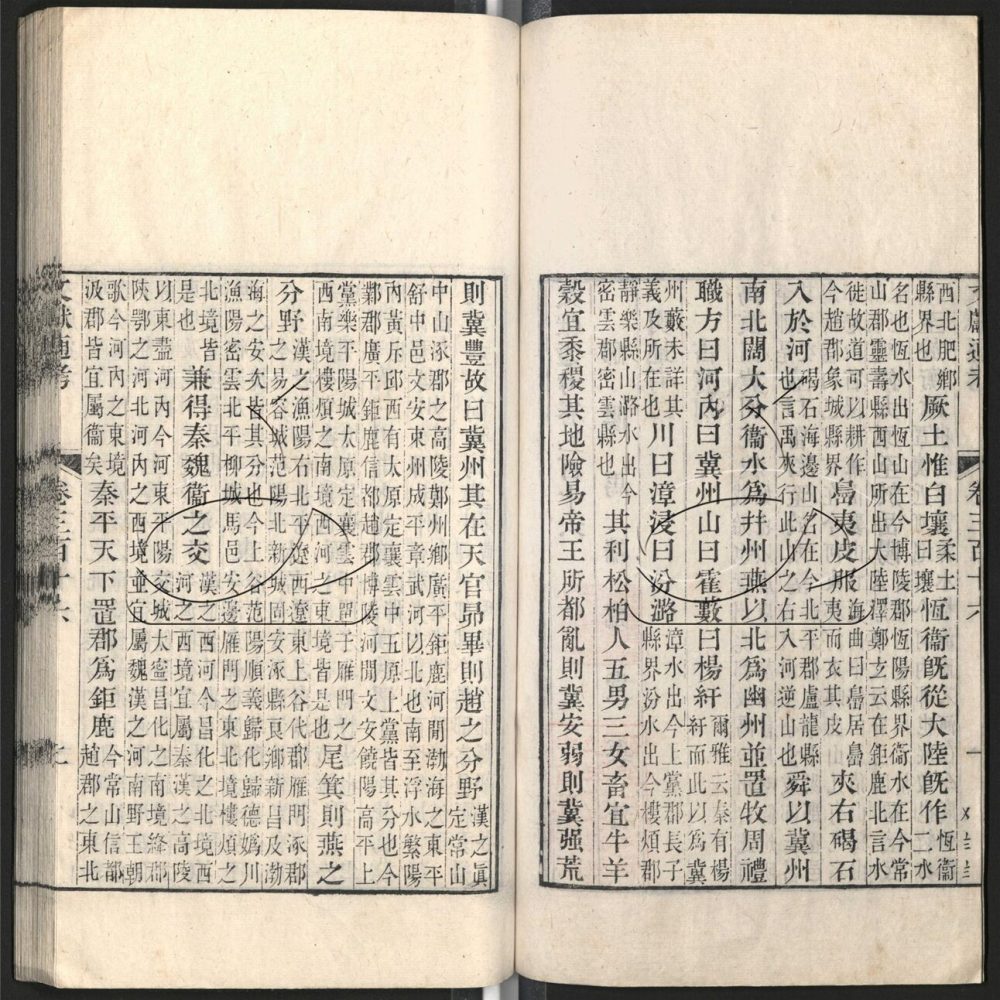 西北肥鄉縣界也厥土惟白壤柔土曰壤恆衞旣從大陸旣作恆衞二水
名也恆水出恆山在今博陵郡恆陽縣界衞水在今常山郡靈壽縣西山所出大陸澤鄭玄云在鉅鹿北言水
徙故道可以耕作今趙郡象城縣界島夷皮服海曲曰島居島夷而衣其皮夾右碣石
入於河碣石海邊山名在今北平郡盧龍縣也言禹夾行此山之右入河逆山也舜以冀州
南北闊大分衞水爲幷州燕以北爲幽州並置牧周禮
職方曰河內曰冀州山曰霍藪曰楊紆爾雅云秦有楊紆而此以爲冀
州藪未詳其義及所在也川曰漳浸曰汾潞漳水出今上黨郡長子縣界汾水出今樓煩郡
靜樂縣山潞水出今密雲郡密雲縣也其利松柏人五男三女畜宜牛羊
穀宜黍稷其地險易帝王所都亂則冀安弱則冀强荒
文獻通考 卷三百十六
則冀豐故曰冀州其在天官昴畢則趙之分野漢之眞定常山
中山涿郡之高陵鄭州鄉廣平鉅鹿河間渤海之東平舒中邑文安東州成平章武河以北也南至浮水繁陽
內黃斥邱西有太原定襄雲中五原上黨皆其分也今鄴郡廣平鉅鹿信都趙郡博陵河間文安饒陽高平上
黨樂平陽城太原定襄雲中單于雁門之西南境樓煩之南境西河之東境皆是也尾箕則燕之
分野漢之漁陽右北平遼西遼東上谷代郡雁門涿郡之易容城范陽北新城固安涿縣良鄉新昌及渤
海之安次皆其分也今上谷范陽順義歸化歸德嬀川漁陽密雲北平柳城馬邑安邊雁門之東北境樓煩之
北境皆是也兼得秦魏衞之交漢之西河今昌化之北境西河之西境宜屬秦漢之高陵
以東盡河內今河東平陽交城太寧昌化之南境絳郡陝鄂之河北河內之西境並宜屬魏漢之河南野王朝
歌今河內之東境汲郡皆宜屬衞矣秦平天下置郡爲鉅鹿今常山信都趙郡之東北
文獻通考 卷三百十六